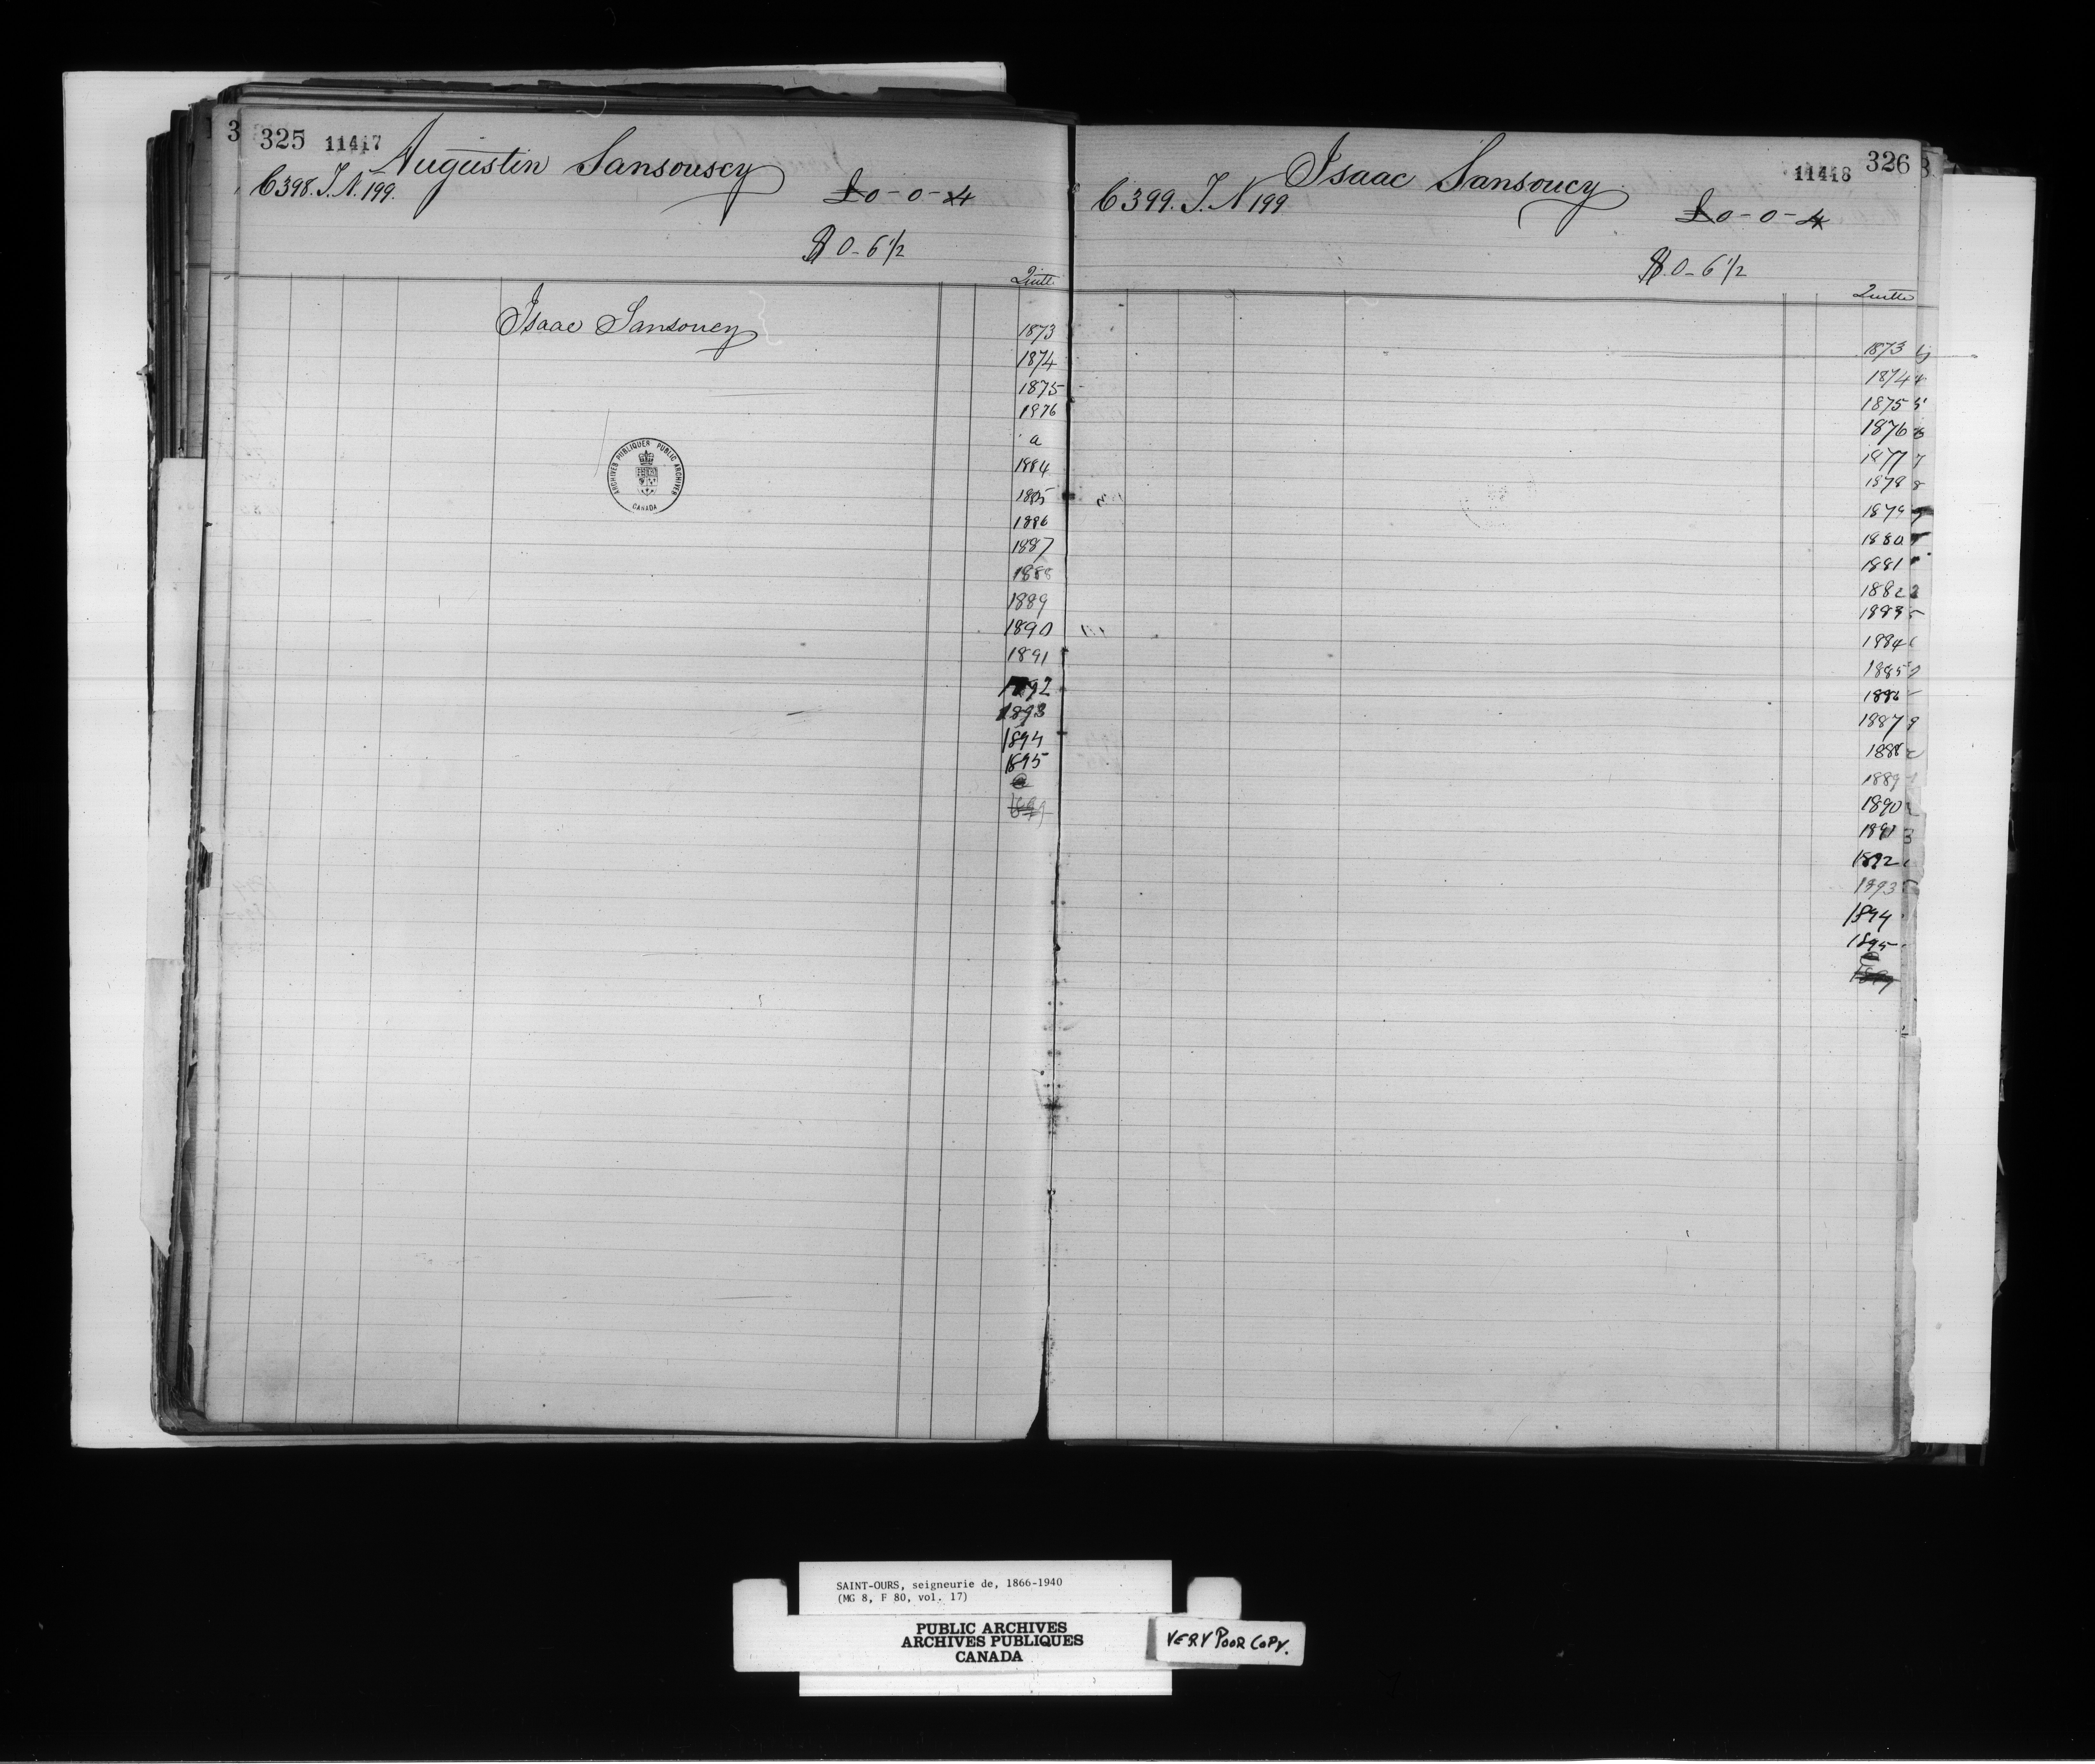 3 325 11417 Augustin Sansouscy
C 398. T. N. 199.
£0-0-4
$0-6 1/2
Quitte
Isaac Sansoucy
1873
1874
1875
1876
a
1884
1885
1886
1887
1888
1889
1890
1891
1892
1893
1894
1895
a
1899
ARCHIVES PUBLIQUES PUBLIC ARCHIVES
CANADA
Isaac Sansoucy 11418 326
C 399. T. N 199
£0-0-4
$.0-6 1/2
Quitte
1873
1874
1875
1876
1877
1878
1879
1880
1881
1882
1883
1884
1885
1886
1887
1888
1889
1890
1891
1892
1893
1894
1895
a
1899
SAINT-OURS, seigneurie de, 1866-1940
(MG 8, F 80, vol. 17)
PUBLIC ARCHIVES
ARCHIVES PUBLIQUES
CANADA
VERY POOR COPY.